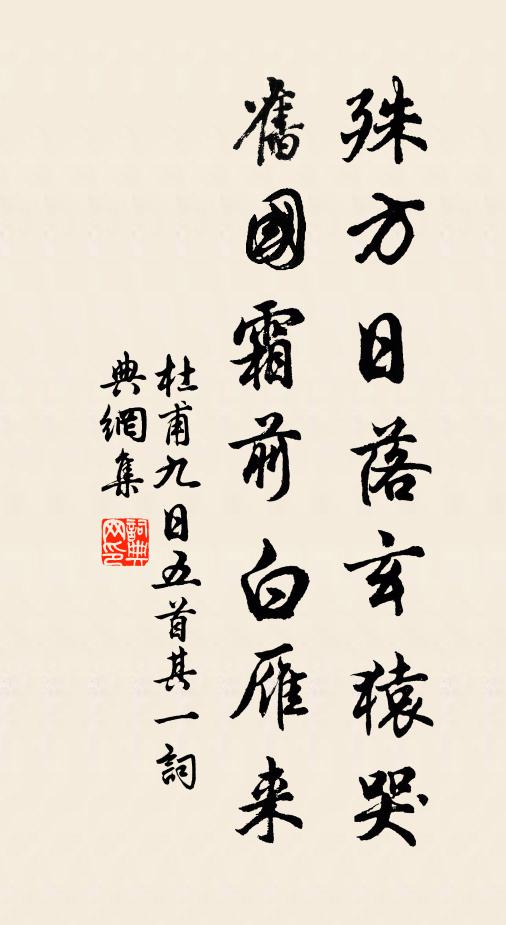 殊方日落玄猿哭
舊國霜前白雁来
杜甫九日五首其一詞
典網集
詞典
网印